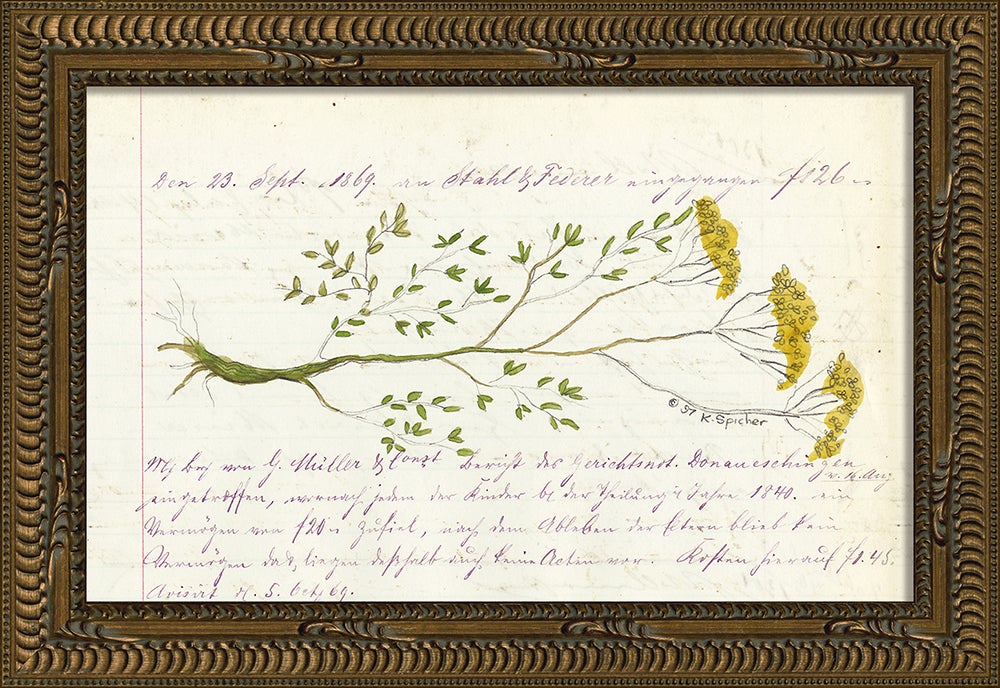 Den 23. Sept. 1869. an Stahl & Federer eingegangen f126
© 97 K. Spicher
von G. Müller & Const Bericht des Gerichtsnot. Donaueschingen
v. 16. Aug
eingetroffen, wornach jedem der Kinder bei der Theilung Jahre 1840. ein
Vermögen von f20 zufiel, nach dem Ableben der Eltern blieb kein
Vermögen da & liegen deßhalb auch keine Acten vor. Kosten hierauf f1.45.
Avisirt d. 5. Oct. 69.